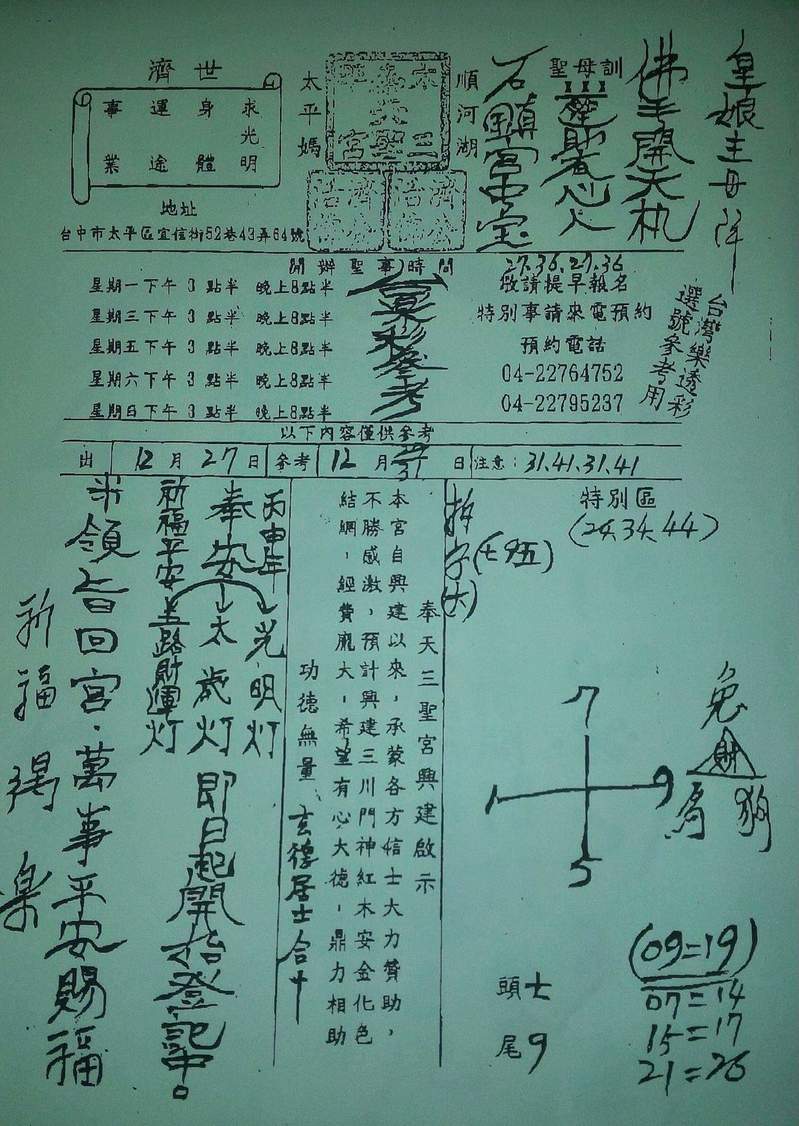 皇娘主母降
佛手開天机
聖母訓
蓮助者心人
石鎮宮中宝
順河湖
奉天三聖宮
太平媽
濟世
求光明
身體
運途
事業
地址
台中市太平區宜信街52巷43弄64號
開辦聖事時間
星期一下午3點半 晚上8點半
星期三下午3點半 晚上8點半
星期五下午3點半 晚上8點半
星期六下午3點半 晚上8點半
星期日下午3點半 晚上8點半
彩參考
27.36.27.36
敬請提早報名
特別事請來電預約
預約電話
04-22764752
04-22795237
台灣樂透彩
選號參考用
以下內容僅供參考
出 12月27日 參考 12月 日 注意:31.41.31.41
特別區
(24.34.44)
拆字(七 伍)
(大)
7
1 9
5
兔
財
馬 狗
(09=19)
07=14
15=17
21=26
頭七
尾9
奉天三聖宮興建啟示
本宮自興建以來,承蒙各方信士大力贊助,
不勝感激,預計興建三川門神紅木安金化色
結網,經費龐大,希望有心大德,鼎力相助
功德無量 玄德居士合十
丙申年 光明灯
奉安 太歲灯 即日起開始登記中。
祈福平安 五路財運灯
米領旨回宮.萬事平安賜福
祈福 楽